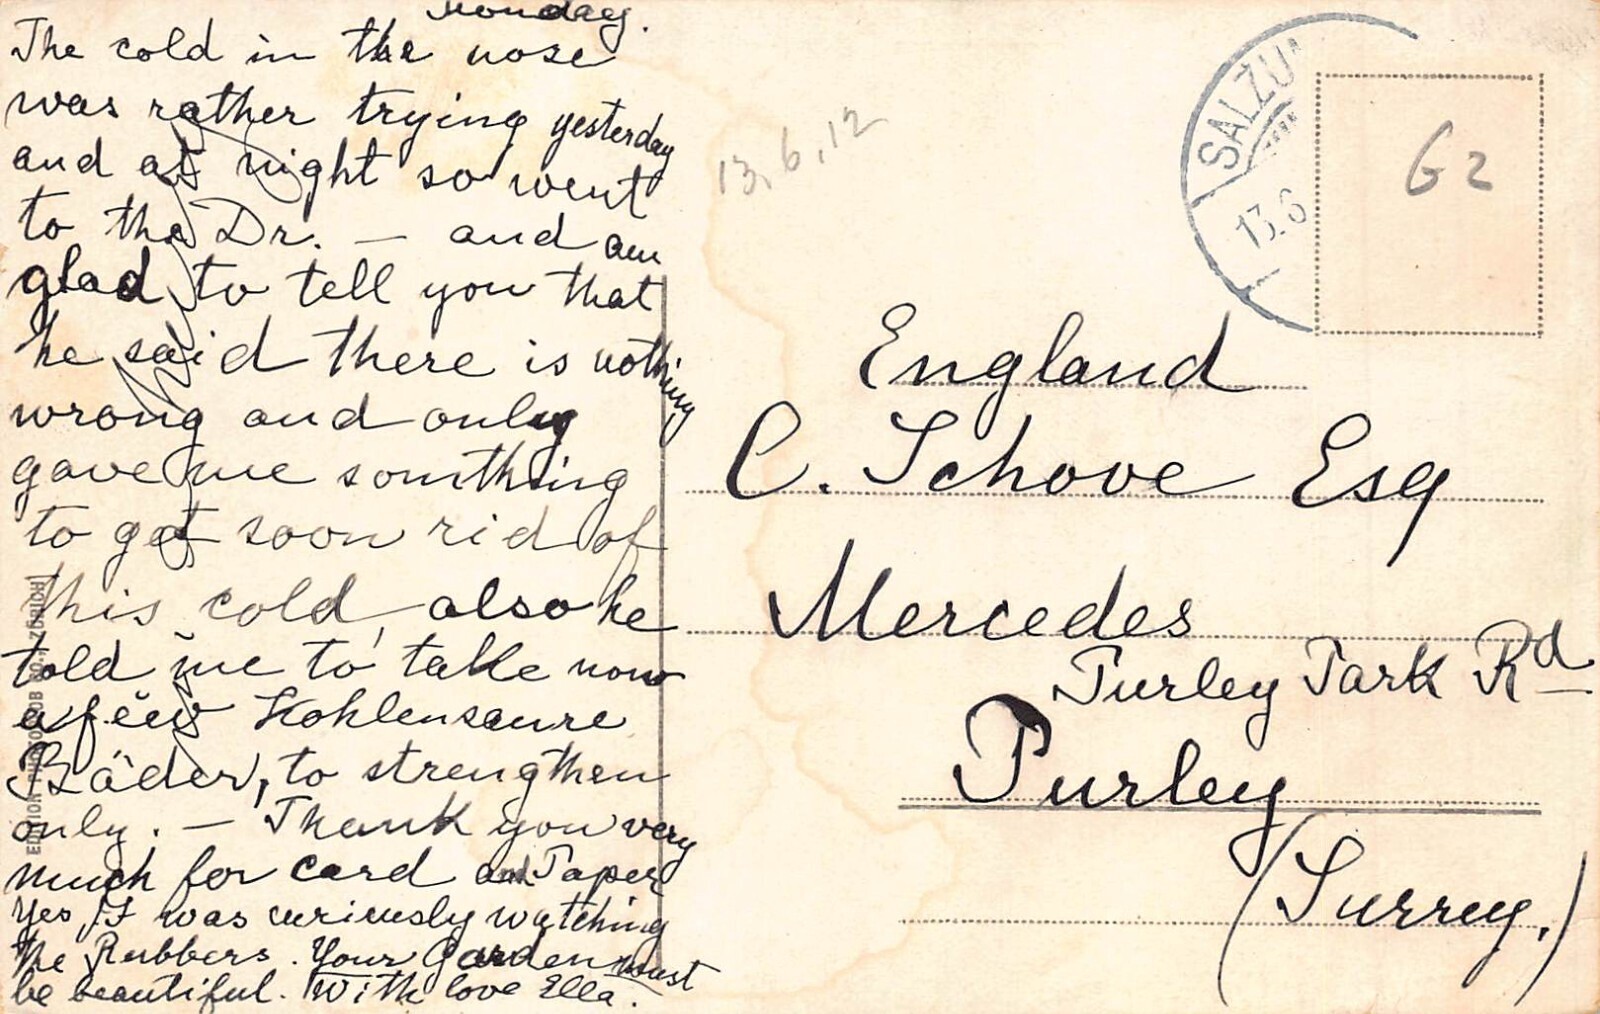 Monday.
The cold in the nose
was rather trying yesterday
and at night so went
to the Dr. — and am
glad to tell you that
he said there is nothing
wrong and only
gave me somthing
to get soon rid of
this cold, also he
told me to take now
a few Kohlensaure
Bäder, to strengthen
only. — Thank you very
much for card and Paper
Yes, I was curiously watching
the Rubbers. Your Garden must
be beautiful. With love Ella.
13.6.12
SALZU
13.6
G2
England
C. Schove Esq
Mercedes
Purley Park Rd
Purley
(Surrey.)